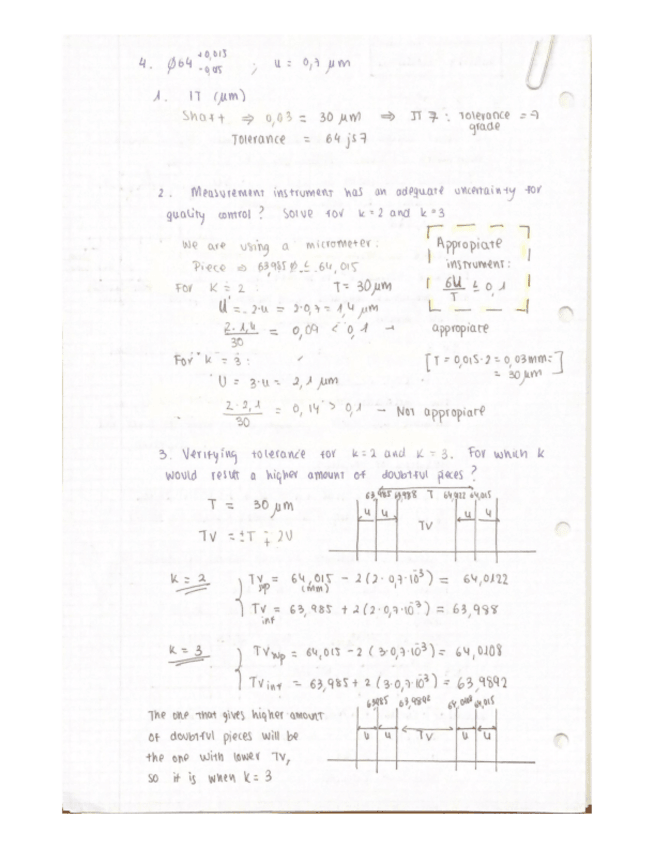 4. Ø64 +0,015 -0,05 ; u = 0,7 μm
1. IT (μm)
Shaft ⇒ 0,03 = 30 μm ⇒ IT 7 : Tolerance grade = 7
Tolerance = 64 js7
2. Measurement instrument has an adequate uncertainty for
quality control? Solve for k=2 and k=3
We are using a micrometer:
Piece ⇒ 63,985 ≤ Ø ≤ 64,015
Appropiate
instrument:
6U/T ≤ 0,1
For K = 2 : T = 30 μm
U = 2·u = 2·0,7 = 1,4 μm
2·1,4/30 = 0,09 < 0,1 → appropiate
For K = 3 : [T = 0,015·2 = 0,03mm:
= 30 μm]
U = 3·u = 2,1 μm
2·2,1/30 = 0,14 > 0,1 – Not appropiate
3. Verifying tolerance for k=2 and k=3. For which k
would result a higher amount of doubtful pieces?
63,985 63,988 T 64,0122 64,015
T = 30 μm
u u TV u u
TV = ±T ∓ 2U
K = 2
TVsup = 64,015 – 2(2·0,7·10⁻³) = 64,0122
(mm)
TVinf = 63,985 + 2(2·0,7·10⁻³) = 63,988
K = 3
TVsup = 64,015 – 2(3·0,7·10⁻³) = 64,0108
TVinf = 63,985 + 2(3·0,7·10⁻³) = 63,9892
63,985 63,9892 64,0108 64,015
u u TV u u
The one that gives higher amount
of doubtful pieces will be
the one with lower TV,
so it is when k=3